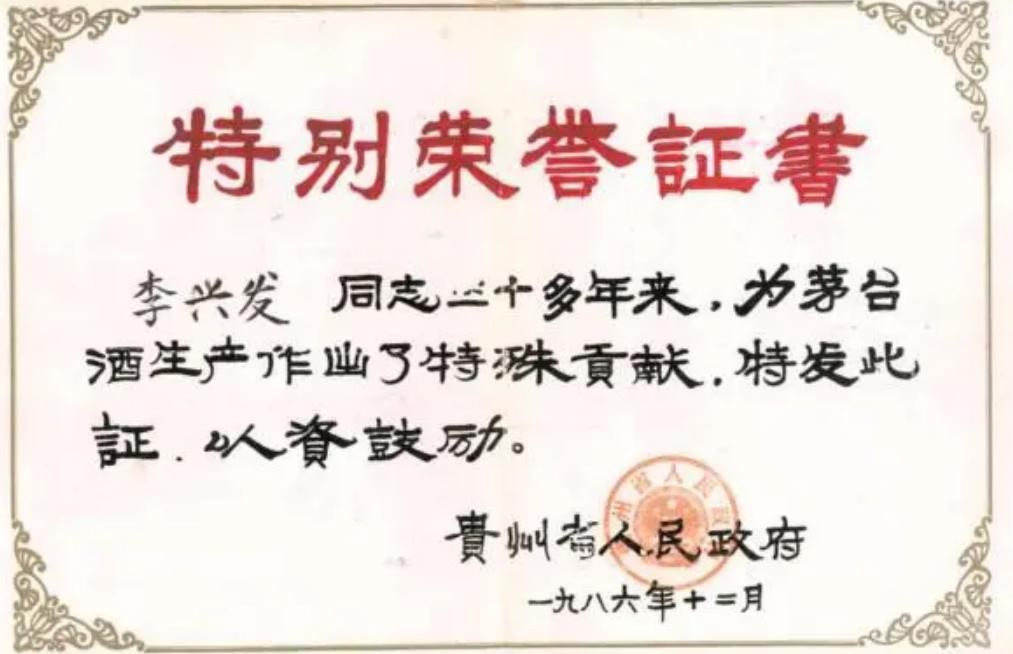 特别荣誉証書
李兴发 同志三十多年来，为茅台
酒生产作出了特殊貢献，特发此
証，以資鼓励。
貴州省人民政府
一九八六年十二月
州省人民政